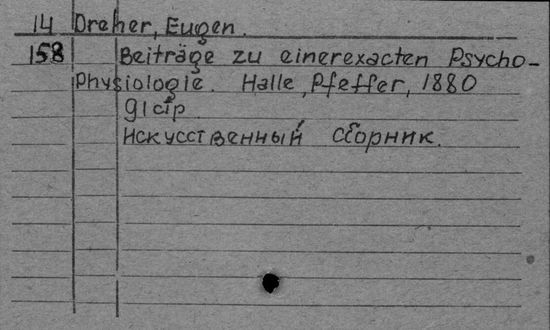 14 Dreher, Eugen.
158 Beiträge zu einerexacten Psycho-
Physiologie. Halle, Pfeffer, 1880
Искусственный сборник.